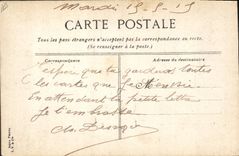 Mardi 15-8-15
CARTE POSTALE
Tous les pays étrangers n'acceptent pas la correspondance au recto.
(Se renseigner à la poste.)
Correspondance
Adresse du destinataire
J'espère que tu gardes toutes
les cartes que
En attendant la petite lettre
je t'embrasse